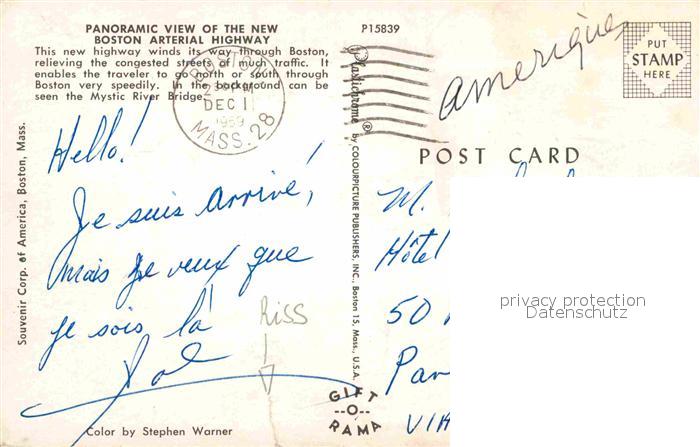 PANORAMIC VIEW OF THE NEW
BOSTON ARTERIAL HIGHWAY
This new highway winds its way through Boston,
relieving the congested streets of much traffic. It
enables the traveler to go north or south through
Boston very speedily. In the background can be
seen the Mystic River Bridge.
P15839
BOSTON
DEC 11
1959
MASS. 28
Amerique
PUT
STAMP
HERE
POST CARD
Souvenir Corp. of America, Boston, Mass.
Hello!
Je suis arrivé,
mais je veux que
je sois là
Riss
Plastichrome ® by COLOURPICTURE PUBLISHERS, INC., Boston 15, Mass., U.S.A.
M.
Hôtel
50
Par
VIA
privacy protection
Datenschutz
GIFT
--O--
RAMA
Color by Stephen Warner